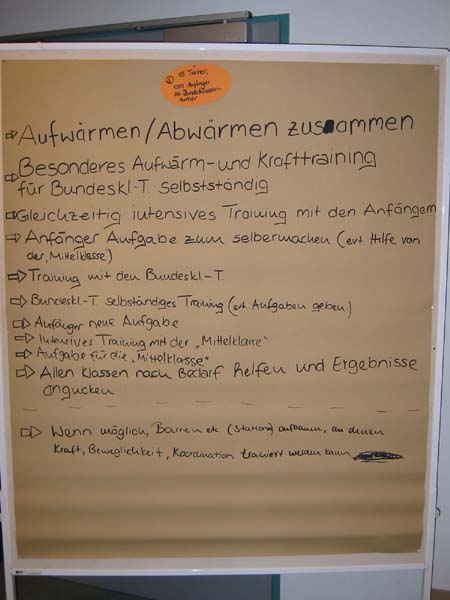 ② 15 Turner,
vom Anfänger
bis Bundesklassen-
turner
⇨ Aufwärmen/Abwärmen zusammen
⇨ Besonderes Aufwärm- und Krafttraining
für Bundeskl-T. selbstständig
⇨ Gleichzeitig intensives Training mit den Anfängern
⇨ Anfänger Aufgabe zum selbermachen (evt. Hilfe von
der „Mittelklasse)
⇨ Training mit den Bundeskl-T.
⇨ Bundeskl-T. selbständiges Training (evt. Aufgaben geben)
⇨ Anfänger neue Aufgabe
⇨ Intensives Training mit der „Mittelklasse"
⇨ Aufgabe für die „Mittelklasse"
⇨ Allen Klassen nach Bedarf helfen und Ergebnisse
angucken
⇨ Wenn möglich, Barren etc (Station) aufbauen, an denen
Kraft, Beweglichkeit, Koordination trainiert werden kann